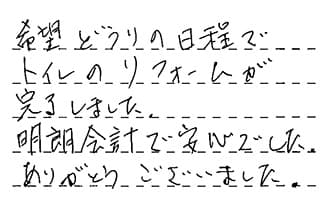 希望どうりの日程で
トイレのリフォームが
完了しました。
明朗会計で安心でした。
ありがとうございました。